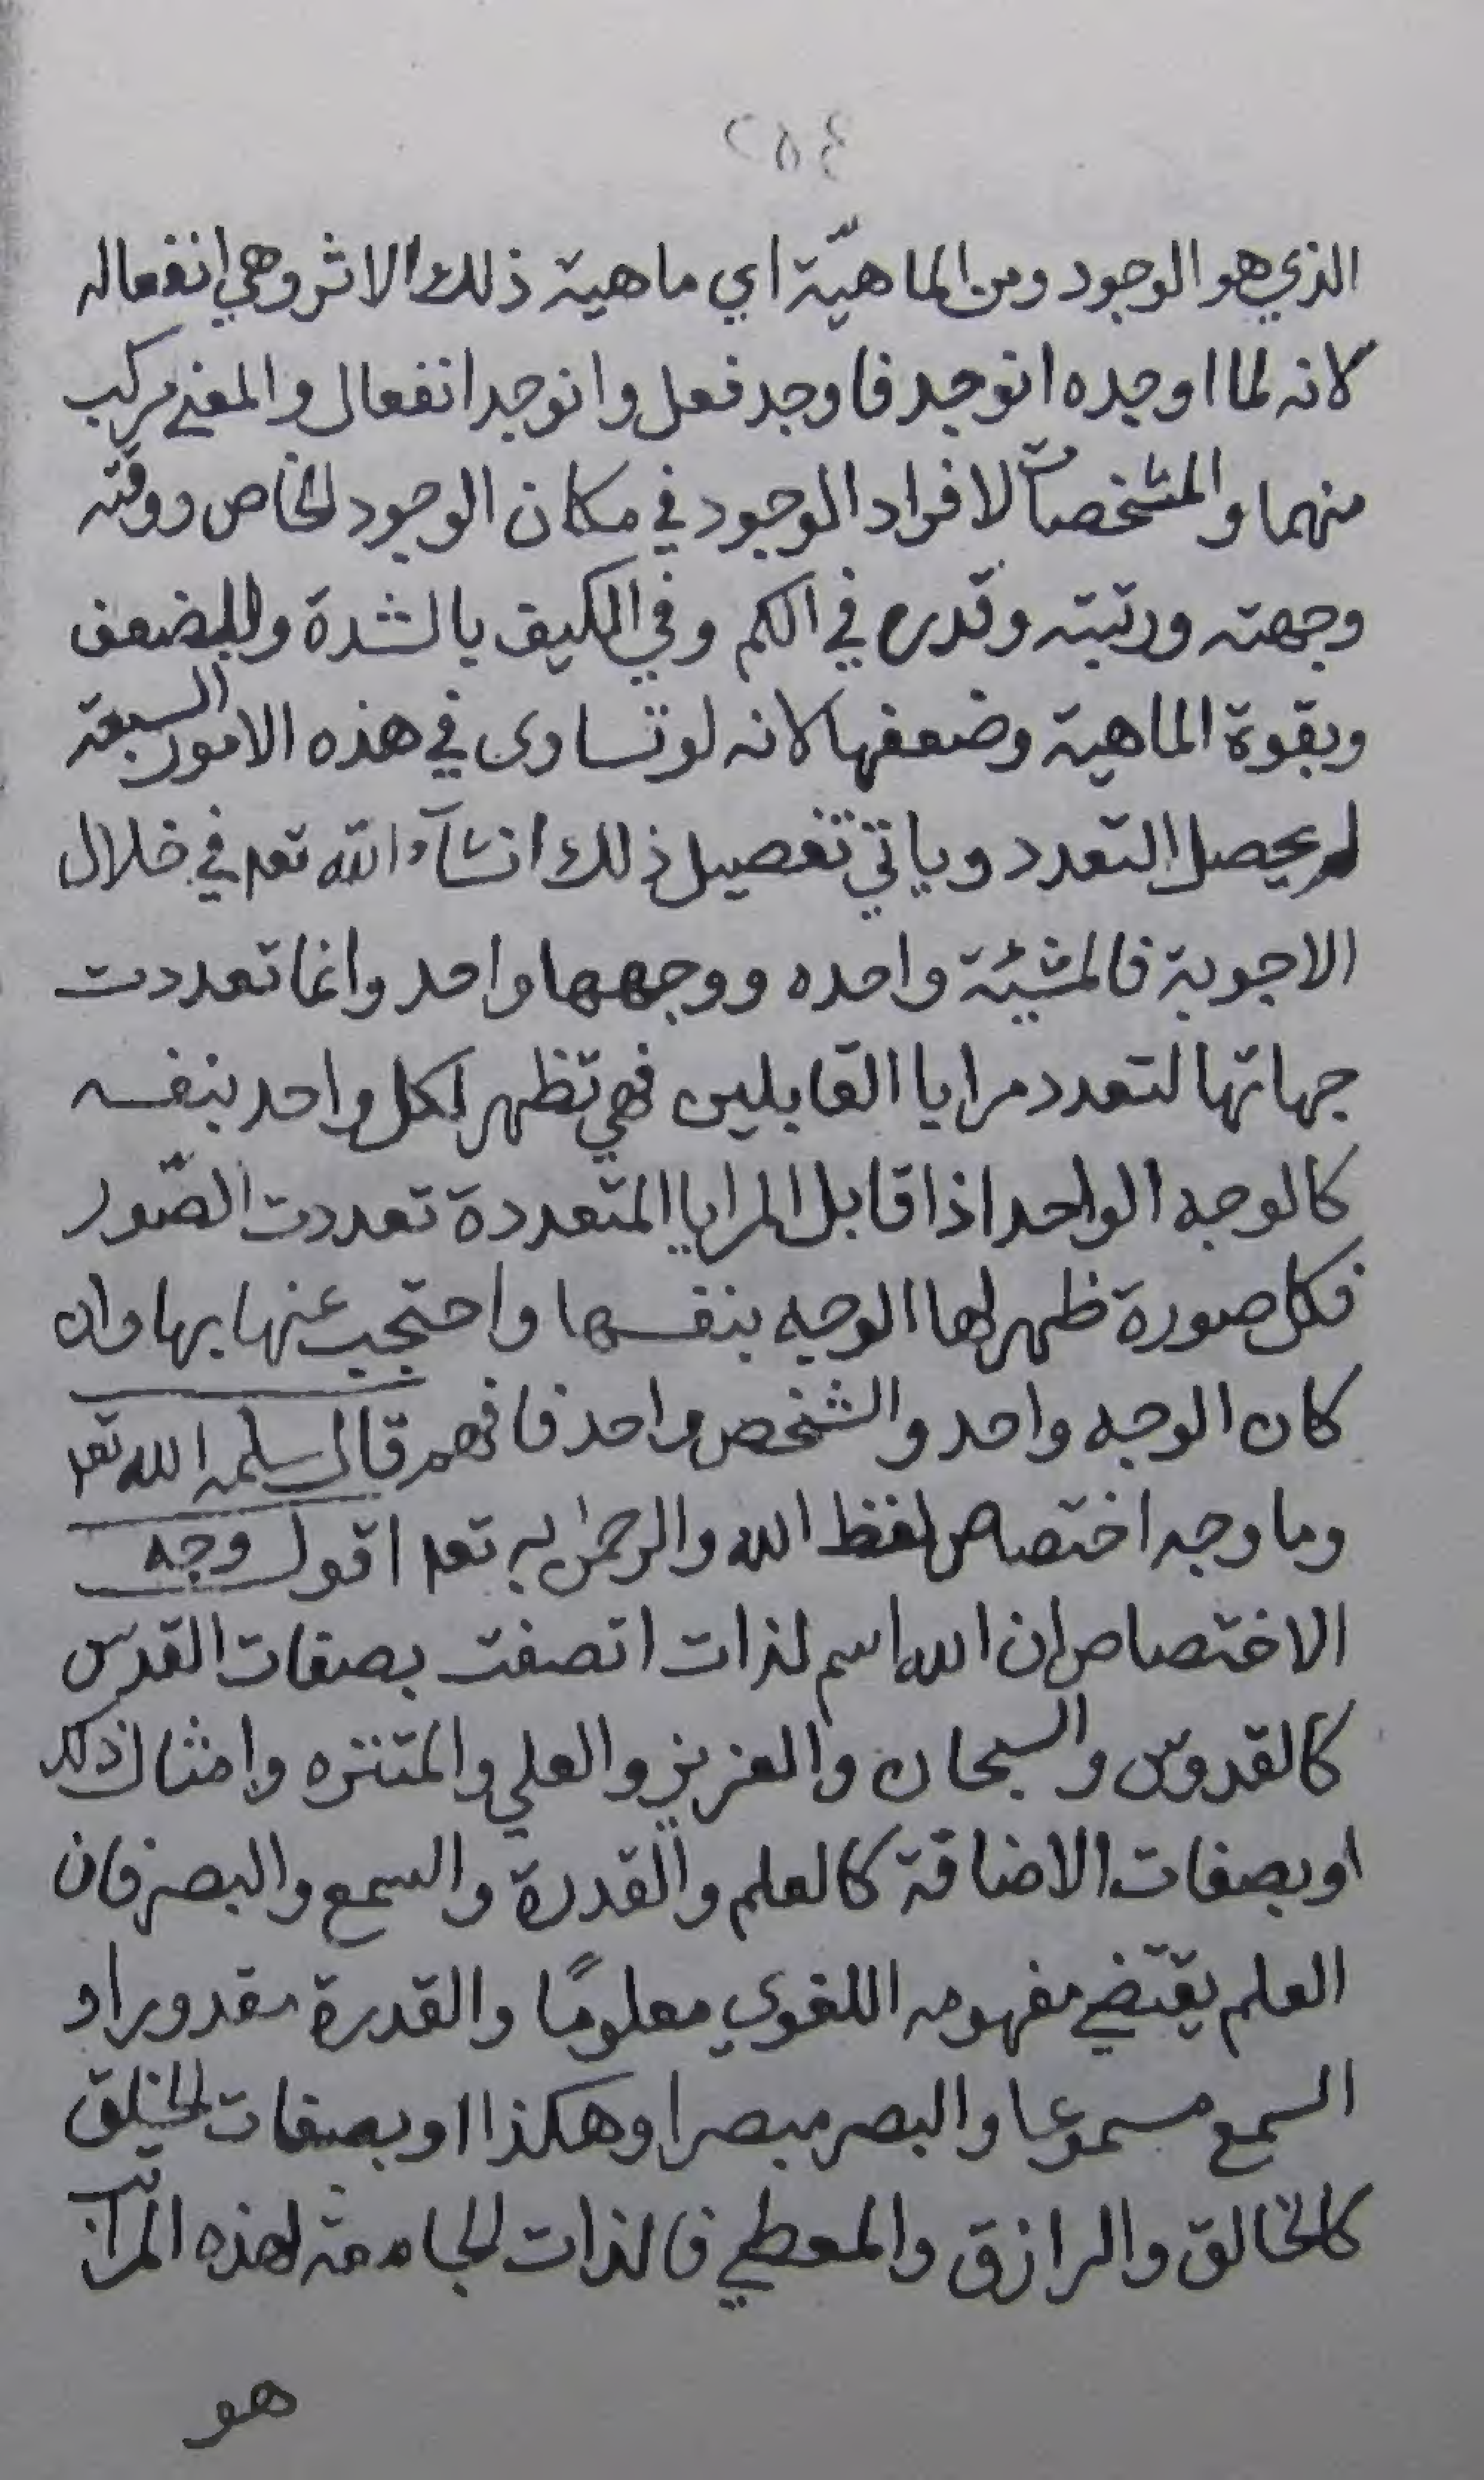 ٢٥٤
الذي هو الوجود ومن الماهيّة اي ماهية ذلك الاثر وهي انفعاله
لانه لما اوجده انوجد فاوجد فعل وانوجد انفعال والمعنى مركب
منهما والمشخصات لافراد الوجود في مكان الوجود الخاص ووقته
وجهته ورتبته وقدره في الكم وفي الكيف بالشدة والضعف
وبقوة الماهية وضعفها لانه لو تساوى في هذه الامور السبعة
لم يحصل التعدد وياتي تفصيل ذلك انشآء الله تعه في خلال
الاجوبة فالمشيئة واحده ووجهها واحد وانما تعددت
جهاتها لتعدد مرايا القابلين فهي تظهر لكل واحد بنفسه
كالوجه الواحد اذا قابل المرايا المتعددة تعددت الصّور
فكل صورة ظهر لها الوجه بنفسها واحتجب عنها بها وان
كان الوجه واحد والشخص واحد فافهم قال سلمه الله تعه
وما وجه اختصاص لفظ الله والرحمن به تعه اقول وجه
الاختصاص ان الله اسم لذات اتصفت بصفات القدس
كالقدوس والسبحان والعزيز والعلي والمتنزه وامثال ذلك
او بصفات الاضافة كالعلم والقدرة والسمع والبصر فان
العلم يقتضي مفهومه اللغوي معلومًا والقدرة مقدورا و
السمع مسموعا والبصر مبصرا وهكذا او بصفات الخلق
كالخالق والرازق والمعطي فالذات الجامعة لهذه المراتب
هو